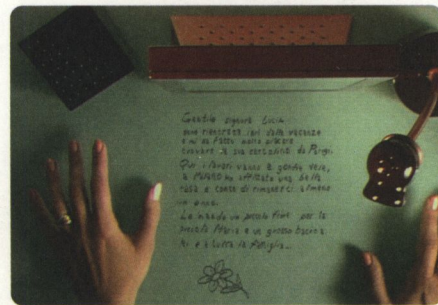 Gentile signora Lucia
sono rientrata ieri dalla vacanza
e mi ha fatto molto piacere
trovare la sua cartolina da Parigi.
Qui i lavori vanno a gonfie vele,
a MILANO ho affittato una bella
casa e conto di rimanerci almeno
un anno.
Le mando un piccolo fiore per la
piccola Maria e un grosso bacione
a tutta la famiglia...